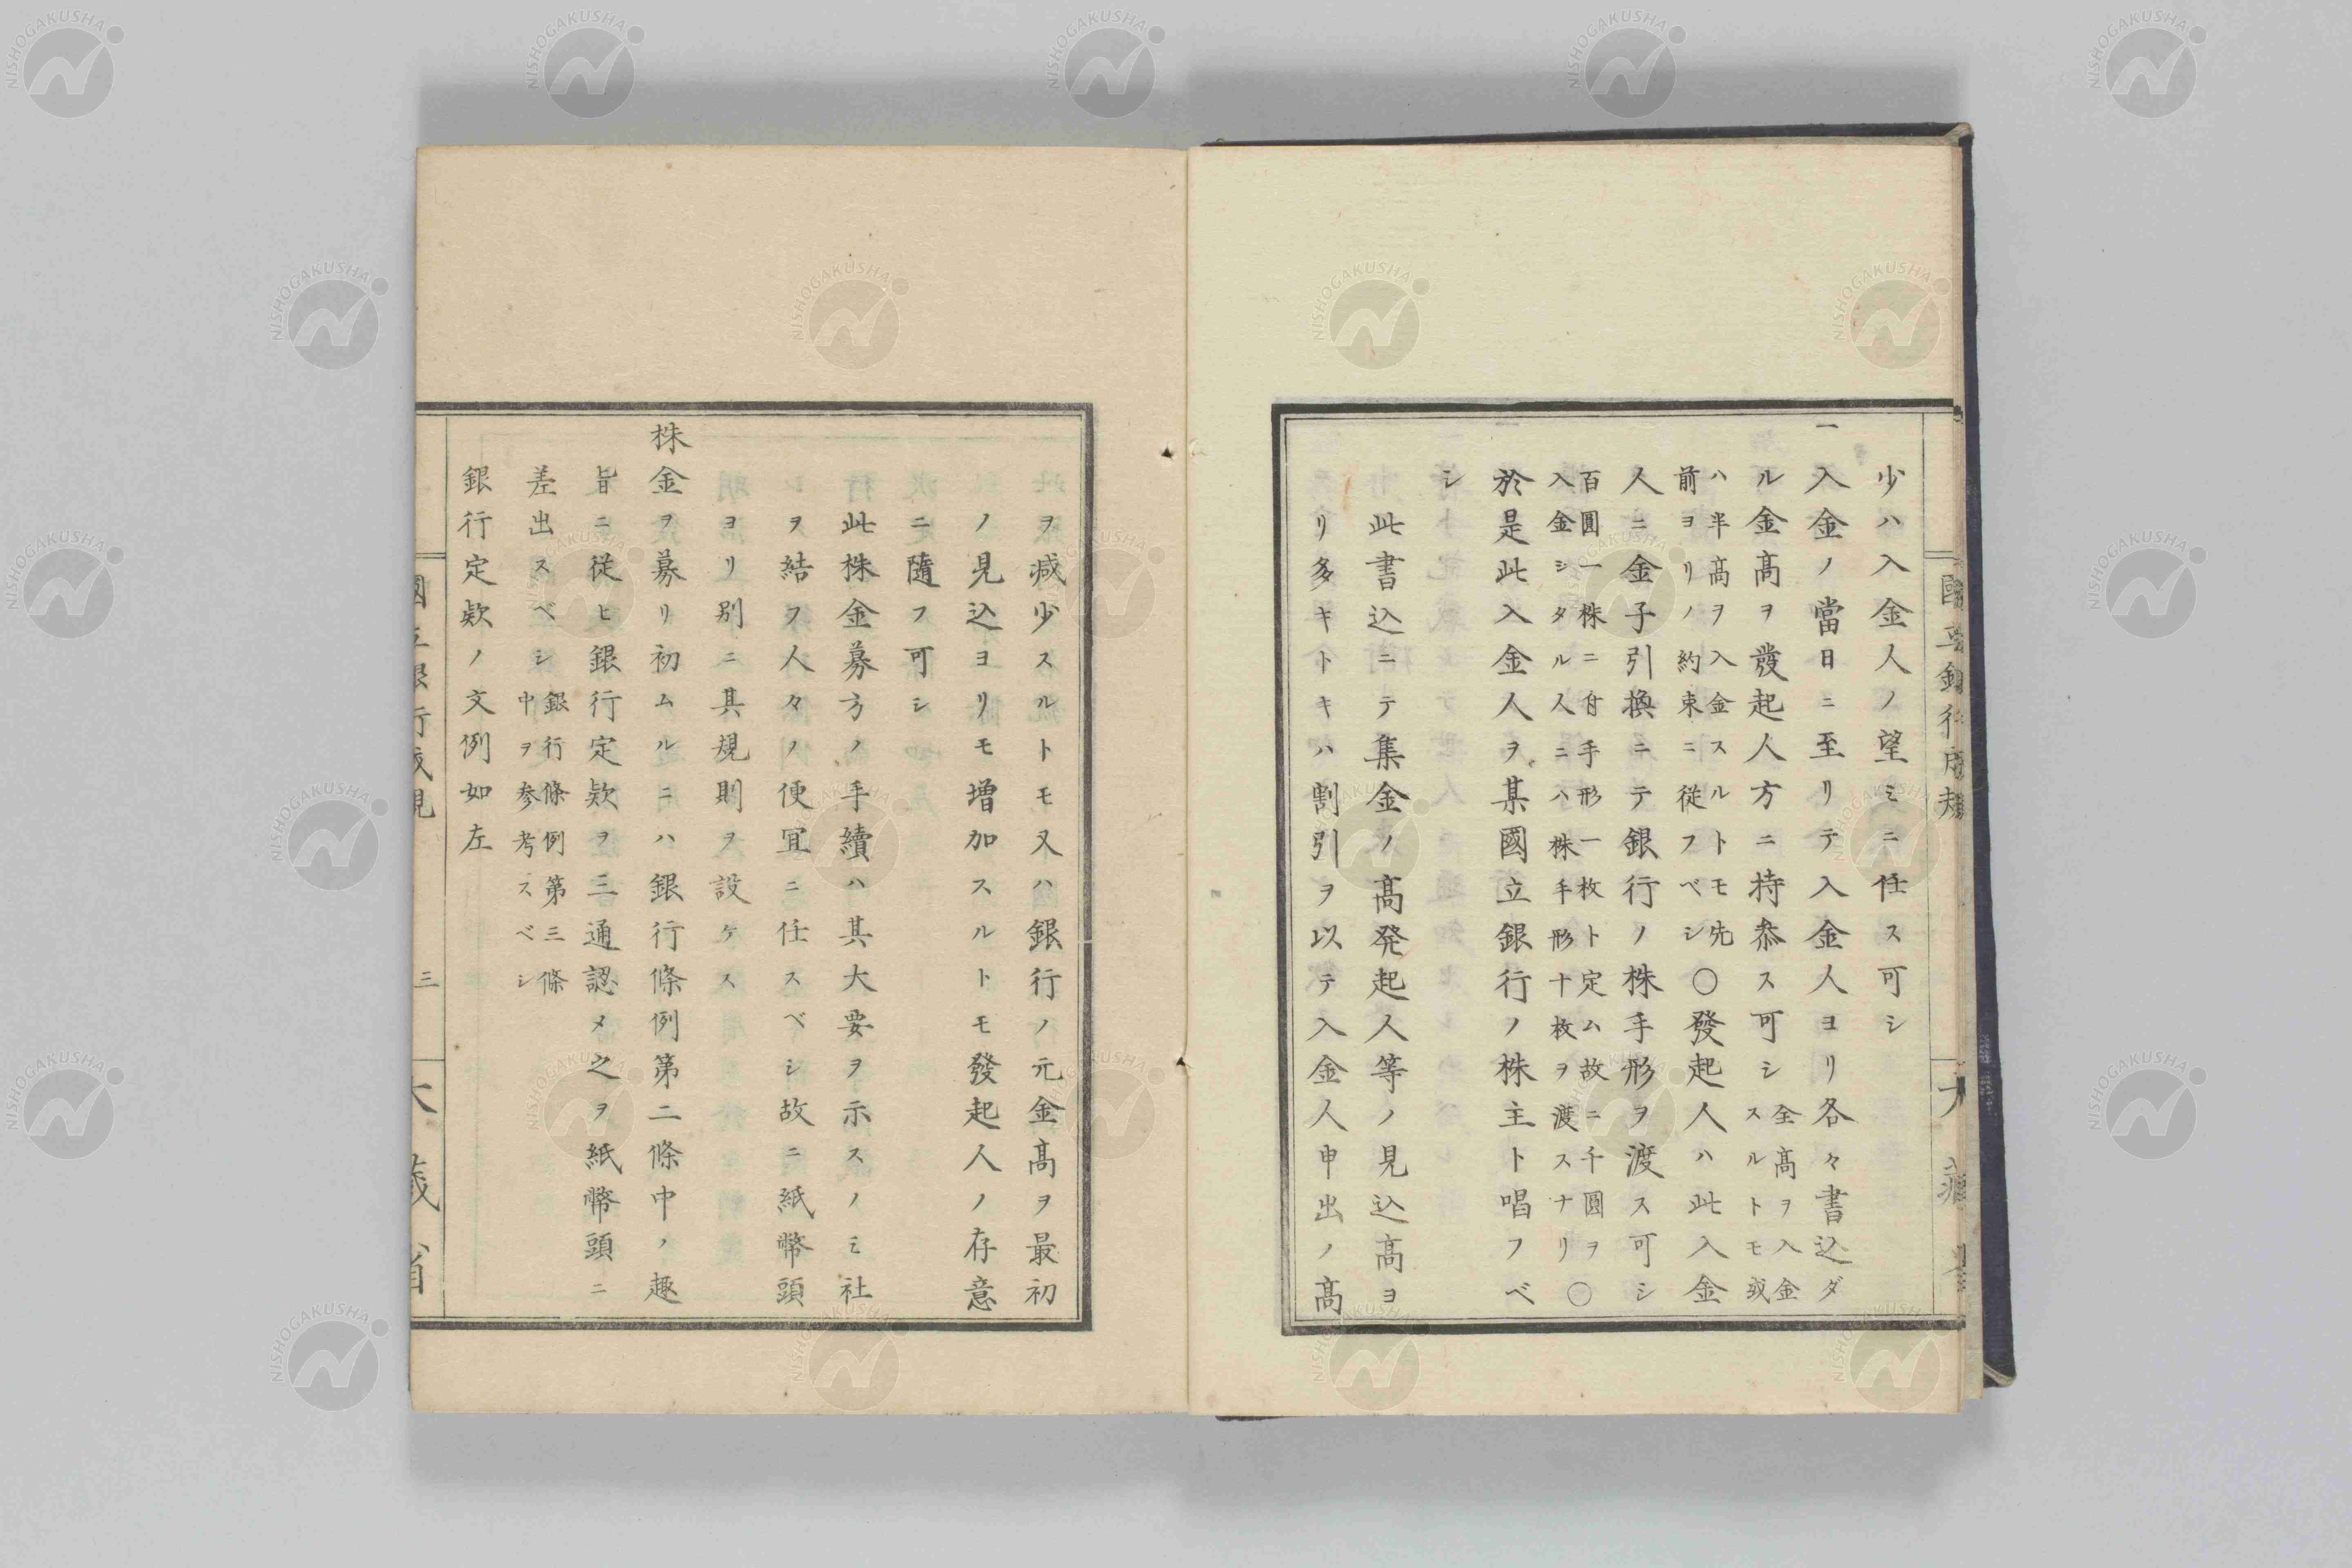 少ハ入金人ノ望ミニ任ス可シ
一入金ノ當日ニ至リテ入金人ヨリ各々書込ダ
ル金髙ヲ發起人方ニ持叅ス可シ全髙ヲ入金スルトモ或
ハ半髙ヲ入金スルトモ先前ヨリノ約束ニ従フベシ〇發起人ハ此入金
人ニ金子引換ニテ銀行ノ株手形ヲ渡ス可シ
百圓一株ニ付手形一枚ト定ム故ニ千圓ヲ入金シタル人ニハ株手形十枚ヲ渡スナリ〇
於是此入金人ヲ某國立銀行ノ株主ト唱フベ
シ
此書込ニテ集金ノ髙発起人等ノ見込髙ヨ
リ多キトキハ割引ヲ以テ入金人申出ノ髙
ヲ減少スルトモ又ハ銀行ノ元金髙ヲ最初
ノ見込ヨリモ増加スルトモ發起人ノ存意
ニ隨フ可シ
此株金募方ノ手續ハ其大要ヲ示スノミ社
ヲ結フ人々ノ便冝ニ任スベシ故ニ紙幣頭
ヨリ別ニ其規則ヲ設ケス
株金ヲ募リ初ムルニハ銀行條例第二條中ノ趣
旨ニ従ヒ銀行定欵ヲ三通認メ之ヲ紙幣頭ニ
差出スベシ銀行條例第三條中ヲ参考スベシ
銀行定欵ノ文例如左
三
NISHOGAKUSHA